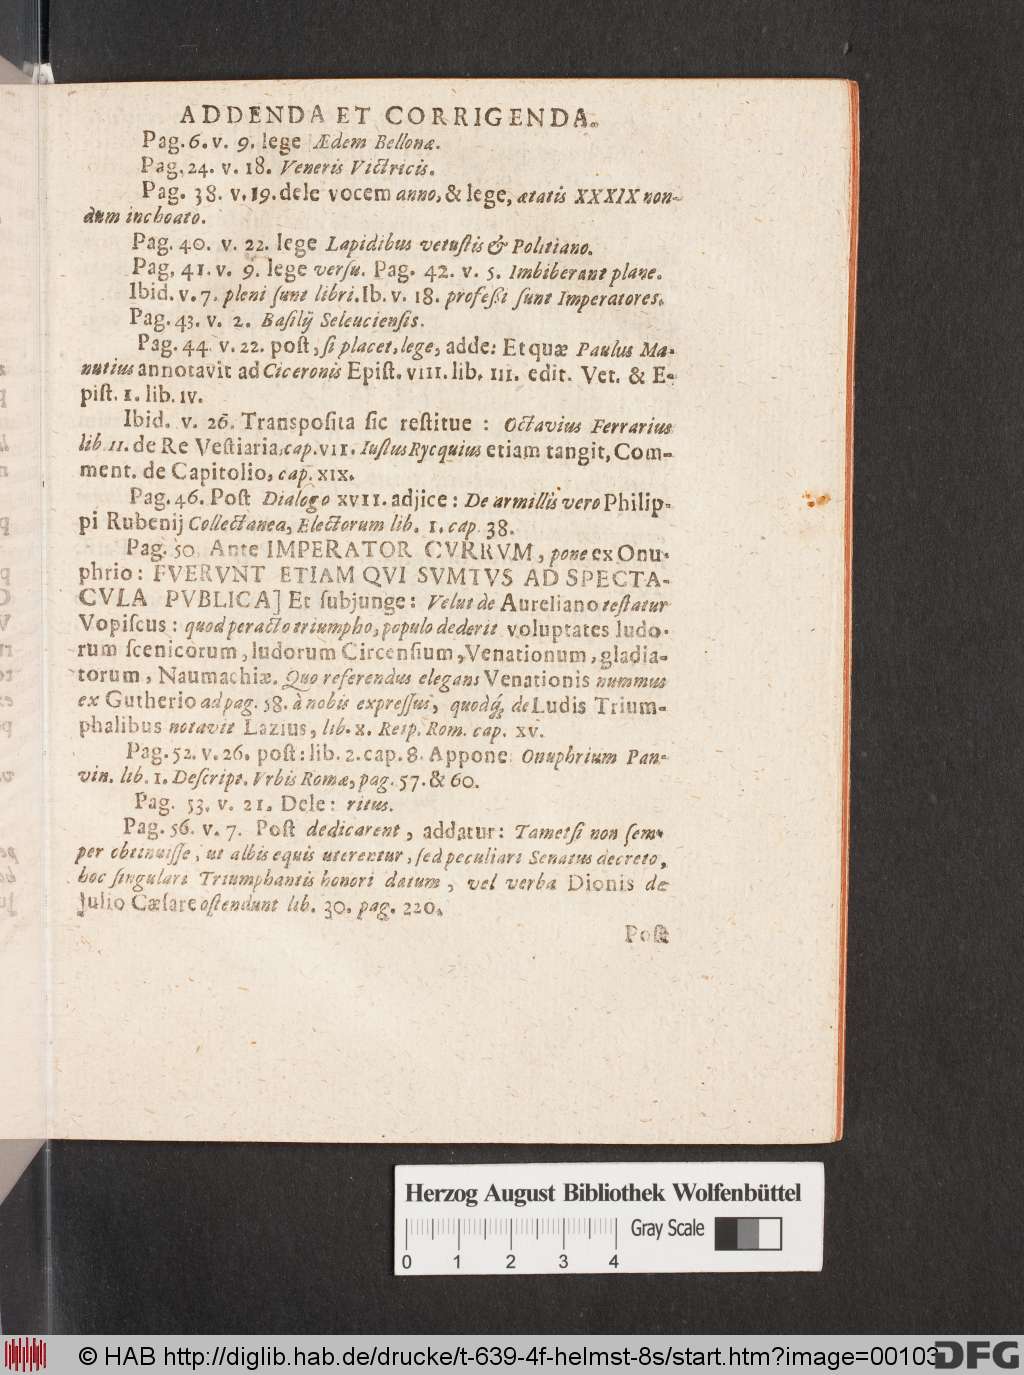 ADDENDA ET CORRIGENDA.
Pag. 6. v. 9. lege Ædem Bellonæ.
Pag. 24. v. 18. Veneris Victricis.
Pag. 38. v. 19. dele vocem anno, & lege, ætatis XXXIX non-
dum inchoato.
Pag. 40. v. 22. lege Lapidibus vetuſtis & Politiano.
Pag. 41. v. 9. lege verſu. Pag. 42. v. 5. Imbiberant plane.
Ibid. v. 7. pleni ſunt libri. Ib. v. 18. profeßi ſunt Imperatores.
Pag. 43. v. 2. Baſilij Seleucienſis.
Pag. 44. v. 22. poſt, ſi placet, lege, adde: Et quæ Paulus Ma-
nutius annotavit ad Ciceronis Epiſt. VIII. lib. III. edit. Vet. & E-
piſt. I. lib. IV.
Ibid. v. 26. Transpoſita ſic reſtitue : Octavius Ferrarius
lib. II. de Re Veſtiaria, cap. VII. Iuſtus Rycquius etiam tangit, Com-
ment. de Capitolio, cap. XIX.
Pag. 46. Poſt Dialogo XVII. adjice : De armillis vero Philip-
pi Rubenij Collectanea, Electorum lib. 1. cap. 38.
Pag. 50. Ante IMPERATOR CVRRVM, pone ex Onu-
phrio : FVERVNT ETIAM QVI SVMTVS AD SPECTA-
CVLA PVBLICA] Et ſubjunge : Velut de Aureliano teſtatur
Vopiſcus : quod peracto triumpho, populo dederit voluptates ludo-
rum ſcenicorum, ludorum Circenſium, Venationum, gladia-
torum, Naumachiæ. Quo referendus elegans Venationis nummus
ex Gutherio ad pag. 58. à nobis expreſſus, quodq́; de Ludis Trium-
phalibus notavit Lazius, lib. X. Resp. Rom. cap. XV.
Pag. 52. v. 26. poſt : lib. 2. cap. 8. Appone Onuphrium Pan-
vin. lib. 1. Deſcript. Vrbis Romæ, pag. 57. & 60.
Pag. 53. v. 21. Dele : ritus.
Pag. 56. v. 7. Poſt dedicarent, addatur : Tametſi non ſem-
per obtinuiſſe, ut albis equis uterentur, ſed peculiari Senatus decreto,
hoc ſingulari Triumphantis honori datum, vel verba Dionis de
Julio Cæſare oſtendunt lib. 30. pag. 220.
Poſt
Herzog August Bibliothek Wolfenbüttel
Gray Scale
0 1 2 3 4
© HAB http://diglib.hab.de/drucke/t-639-4f-helmst-8s/start.htm?image=00103
DFG